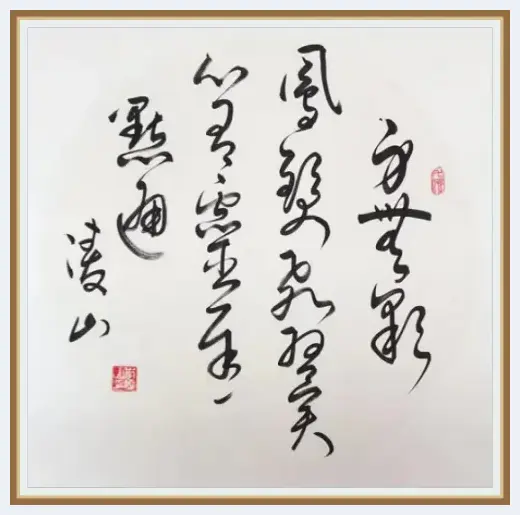 身無彩
鳳雙飛翼
心有靈犀一
點通
凌山